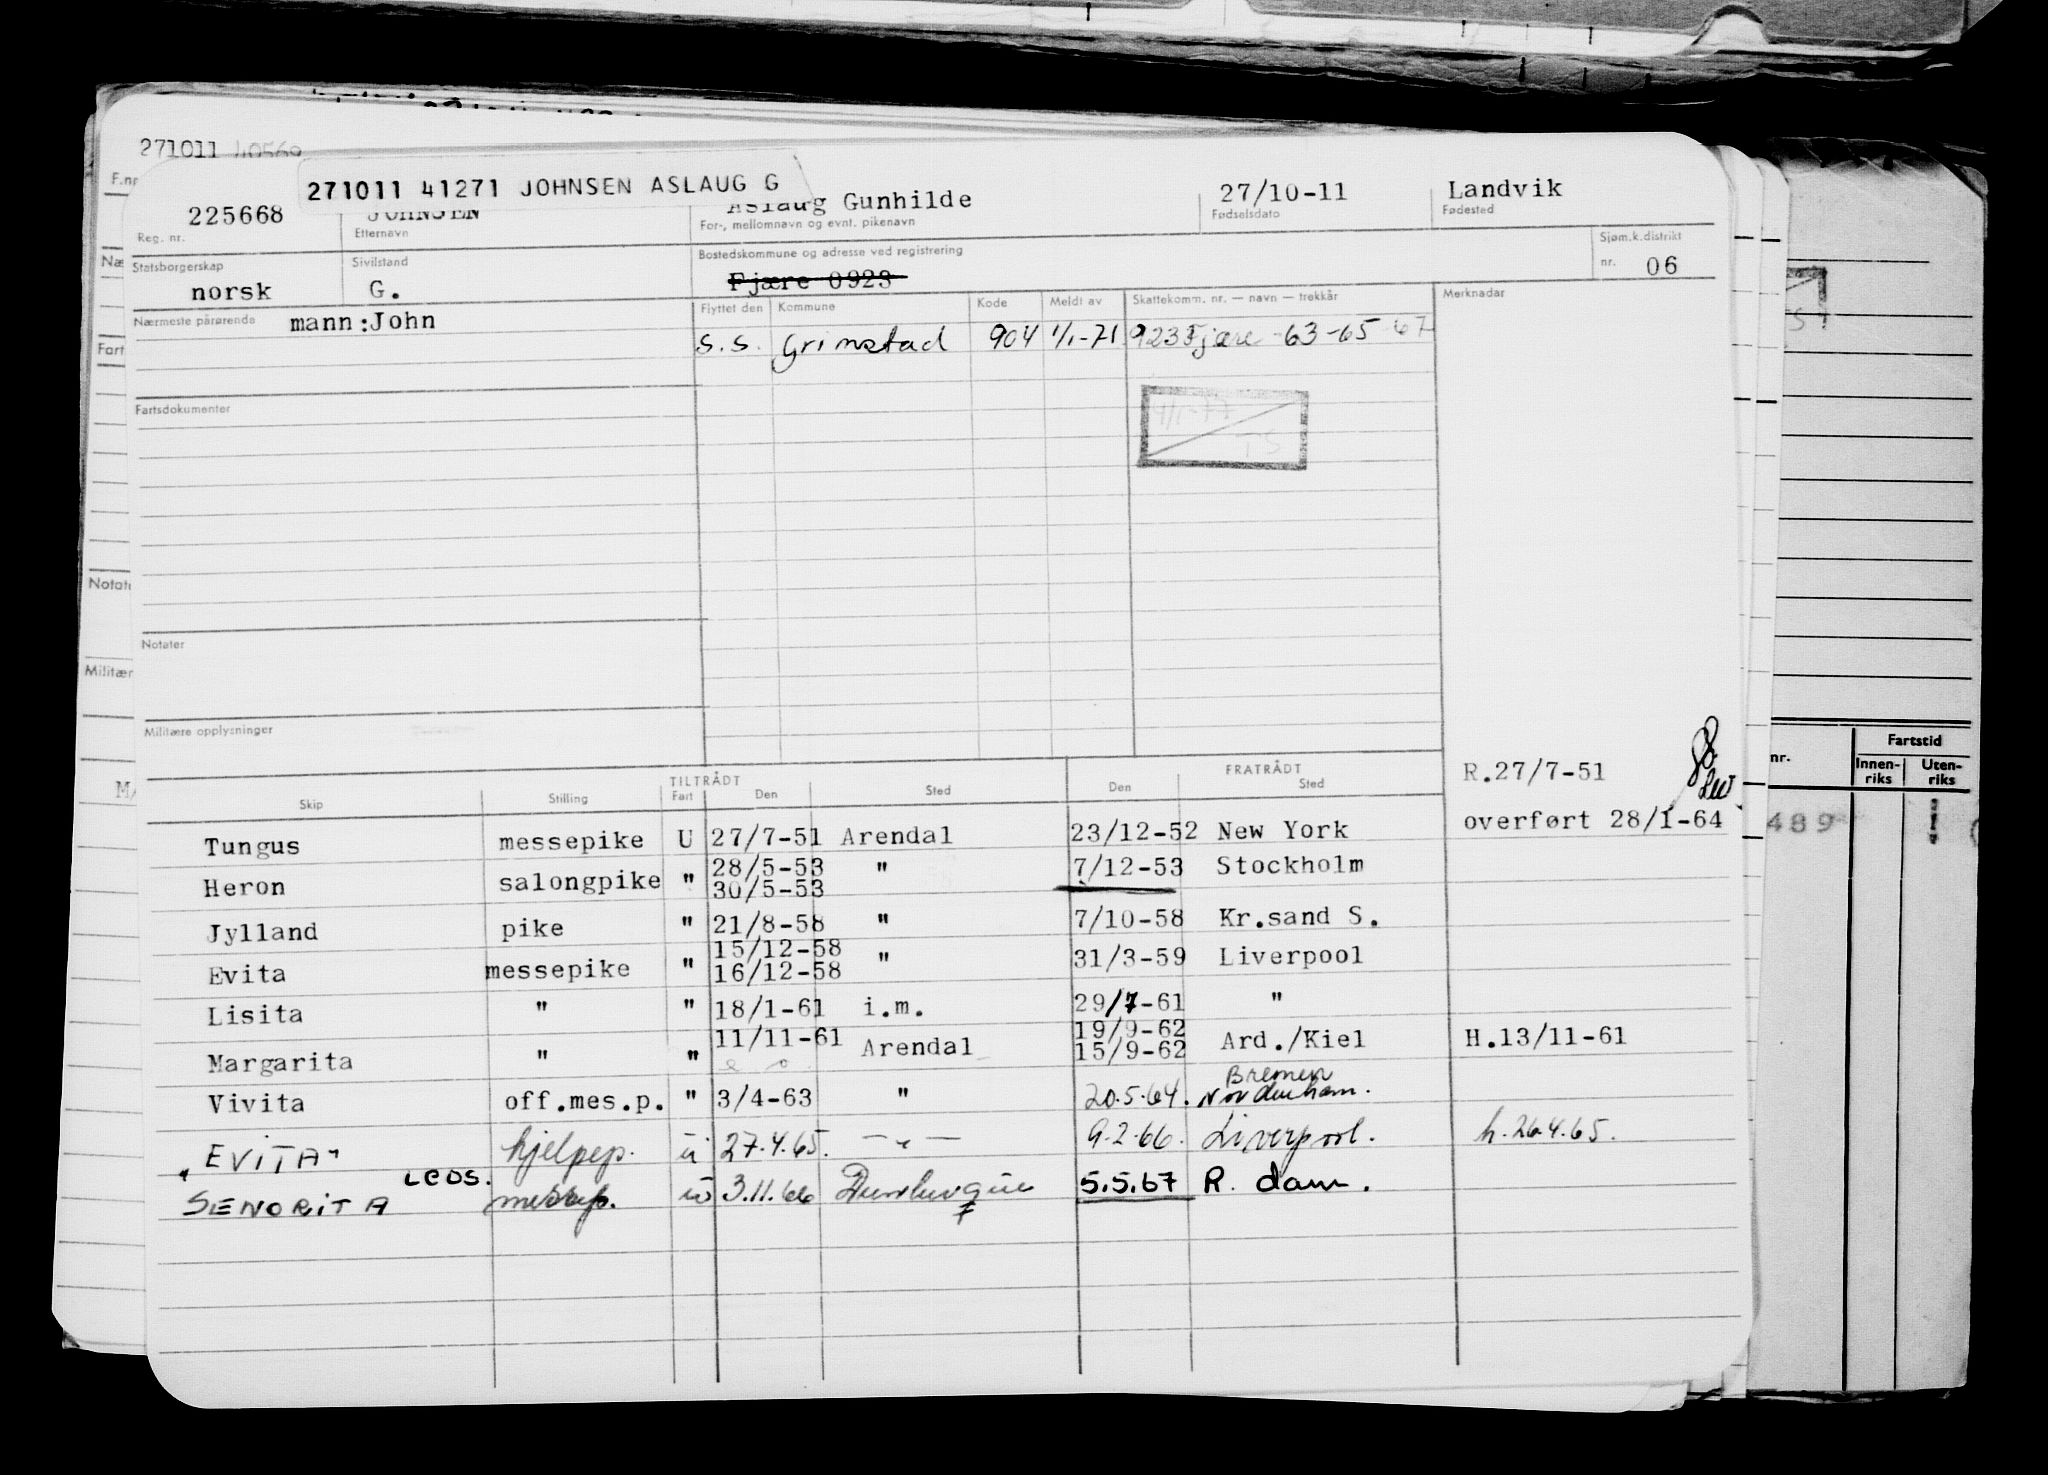 271011 40569
271011 41271 JOHNSEN ASLAUG G
F.nr
225668 JOHNSEN Aslaug Gunhilde 27/10-11 Landvik
Reg. nr. Etternavn For-, mellomnavn og evnt. pikenavn Fødselsdato Fødested
Statsborgerskap Sivilstand Bostedskommune og adresse ved registrering Sjøm.k.distrikt
norsk G. Fjære 0923 nr. 06
Nærmeste pårørende mann:John Flyttet den Kommune Kode Meldt av Skattekomm. nr. — navn — trekkår Merknadar
s.s. Grimstad 904 1/1-71 923 Fjære -63-65-67
Fartsdokumenter
4/1-77
TS
Notater
Militære opplysninger
TILTRÅDT FRATRÅDT R.27/7-51
Skip Stilling Fart Den Sted Den Sted
overført 28/1-64
Tungus messepike U 27/7-51 Arendal 23/12-52 New York
Heron salongpike " 28/5-53 30/5-53 " 7/12-53 Stockholm
Jylland pike " 21/8-58 " 7/10-58 Kr.sand S.
Evita messepike " 15/12-58 16/12-58 " 31/3-59 Liverpool
Lisita " " 18/1-61 i.m. 29/7-61 "
Margarita " " 11/11-61 Arendal 19/9-62 15/9-62 Ard./Kiel H.13/11-61
Vivita off.mes.p. " 3/4-63 " 20.5.64. Bremen Nordenham.
"EVITA" hjelpep. u 27.4.65. — " — 9.2.66. Liverpool. h.26.4.65.
LCOS.
SENORITA messep. u 3.11.66 Dunkerque 5.5.67 R.dam.
nr. Fartstid
Innen-riks Uten-riks
489